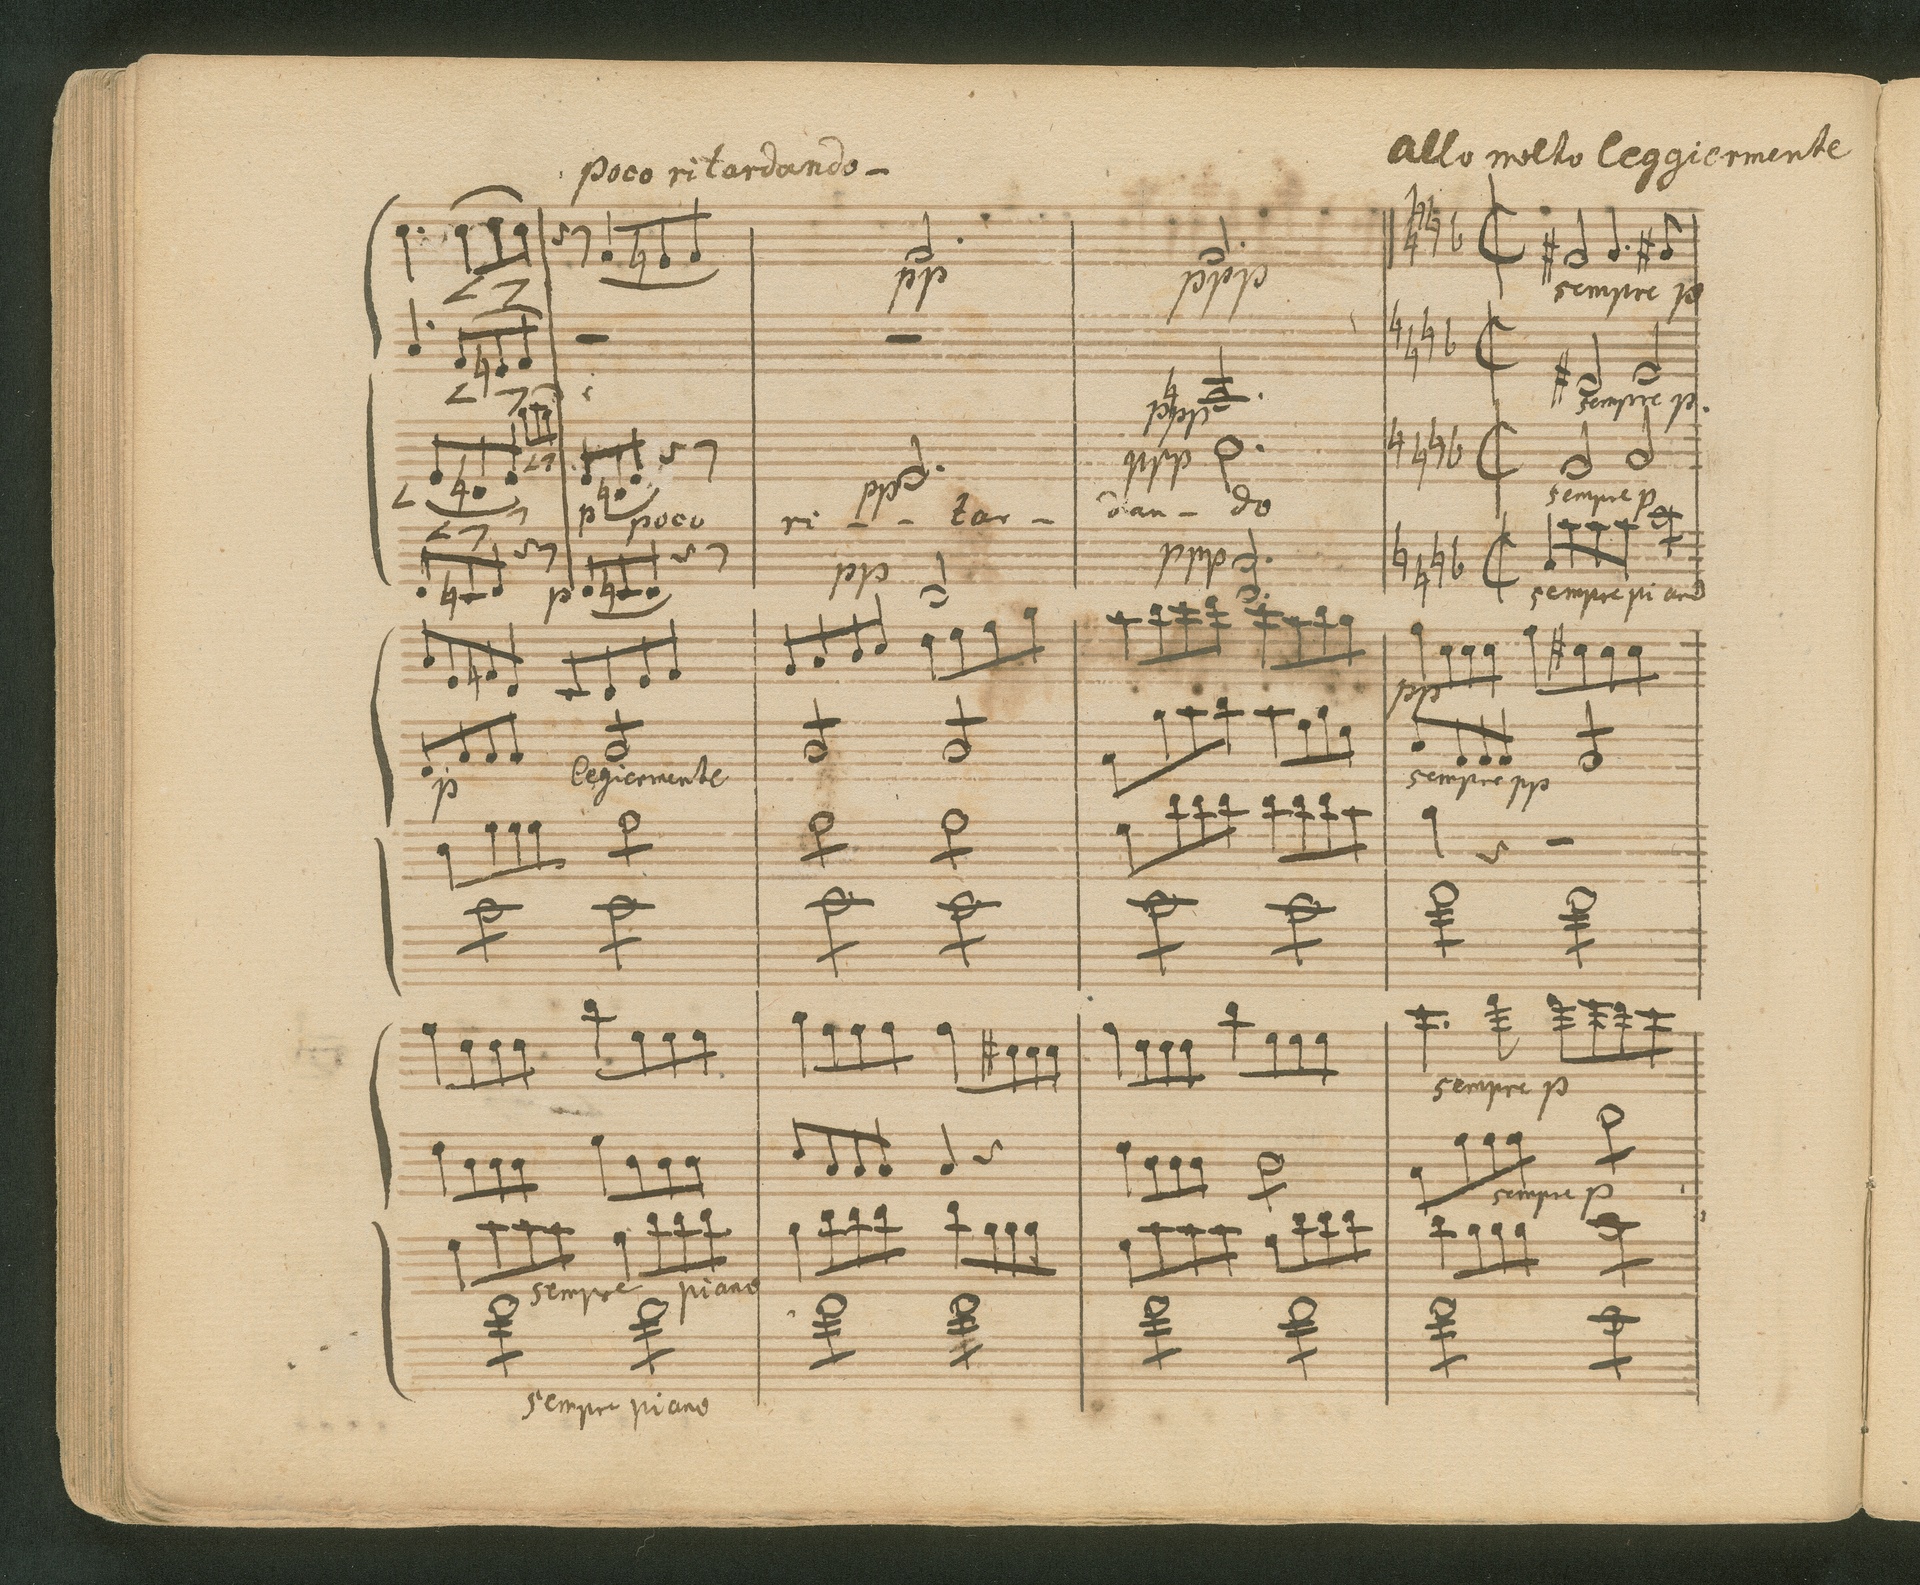 poco ritardando -
allo molto leggiermente
sempre p
sempre p.
sempre p
p poco ri - - tar - dan - do
p
sempre piano
pp
p legiermente
sempre pp
sempre p
sempre p
sempre piano
sempre piano